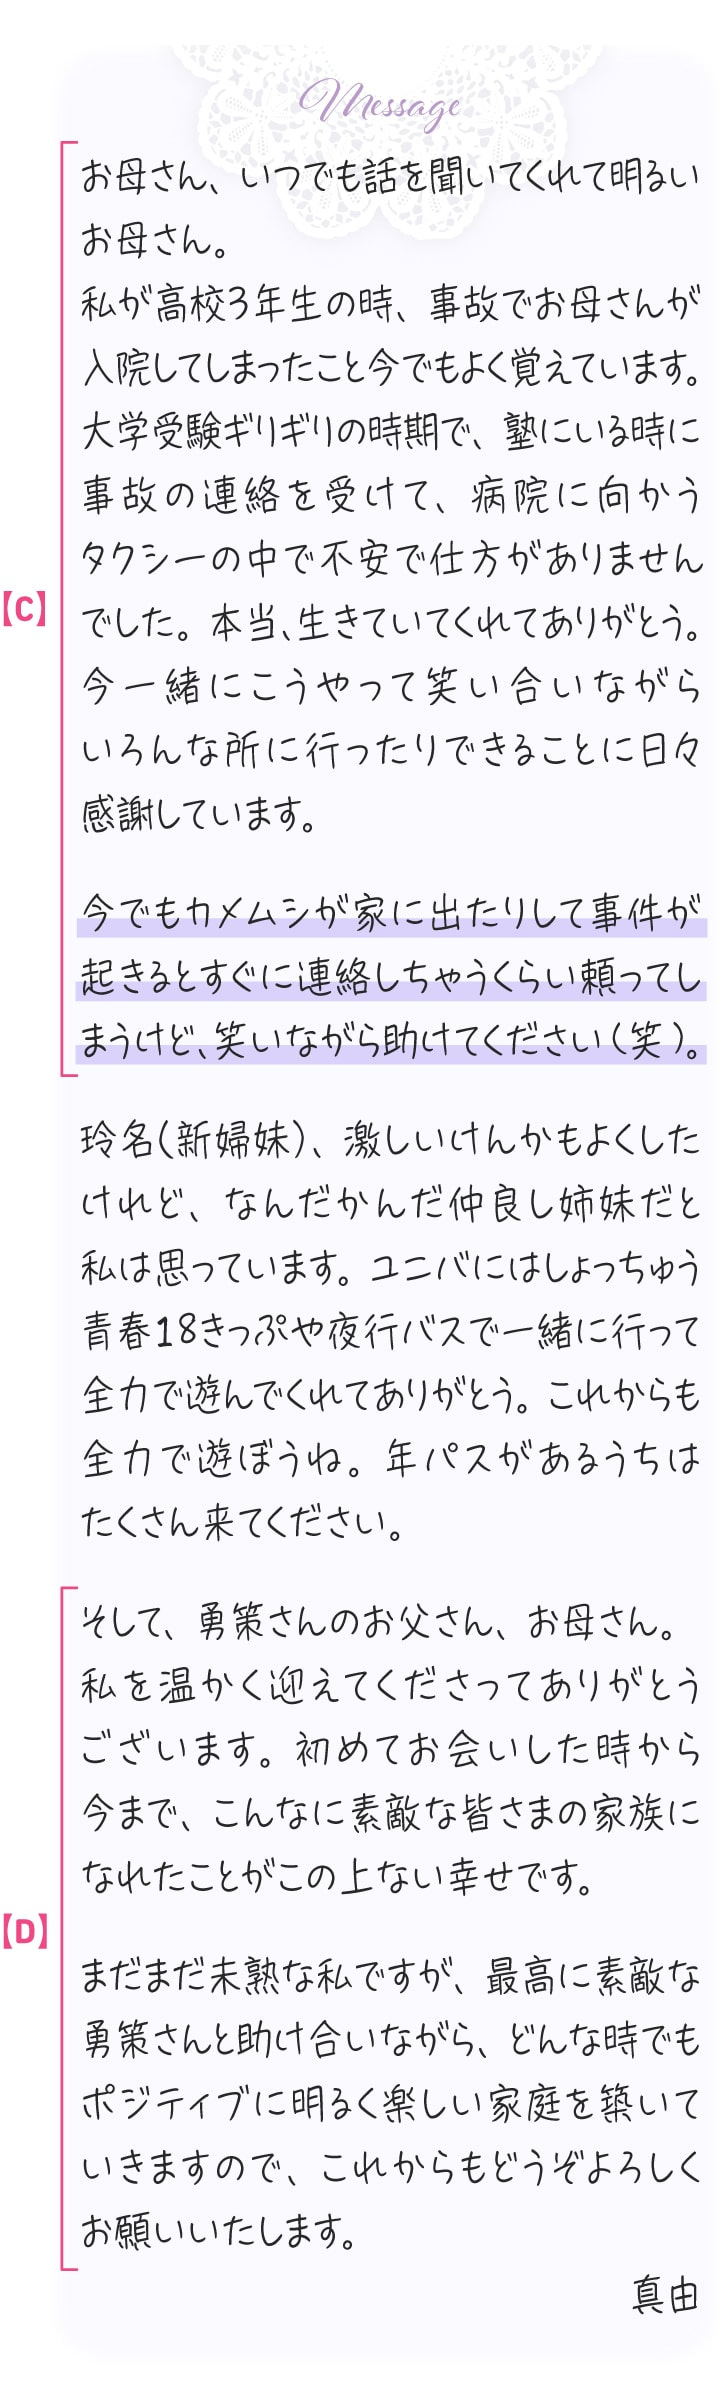 Message
お母さん、いつでも話を聞いてくれて明るい
お母さん。
私が高校3年生の時、事故でお母さんが
入院してしまったこと今でもよく覚えています。
大学受験ギリギリの時期で、塾にいる時に
事故の連絡を受けて、病院に向かう
タクシーの中で不安で仕方がありません
でした。本当、生きていてくれてありがとう。
今一緒にこうやって笑い合いながら
いろんな所に行ったりできることに日々
感謝しています。
今でもカメムシが家に出たりして事件が
起きるとすぐに連絡しちゃうくらい頼ってし
まうけど、笑いながら助けてください(笑)。
【C】
玲名(新婦妹)、激しいけんかもよくした
けれど、なんだかんだ仲良し姉妹だと
私は思っています。ユニバにはしょっちゅう
青春18きっぷや夜行バスで一緒に行って
全力で遊んでくれてありがとう。これからも
全力で遊ぼうね。年パスがあるうちは
たくさん来てください。
そして、勇策さんのお父さん、お母さん。
私を温かく迎えてくださってありがとう
ございます。初めてお会いした時から
今まで、こんなに素敵な皆さまの家族に
なれたことがこの上ない幸せです。
【D】
まだまだ未熟な私ですが、最高に素敵な
勇策さんと助け合いながら、どんな時でも
ポジティブに明るく楽しい家庭を築いて
いきますので、これからもどうぞよろしく
お願いいたします。
真由